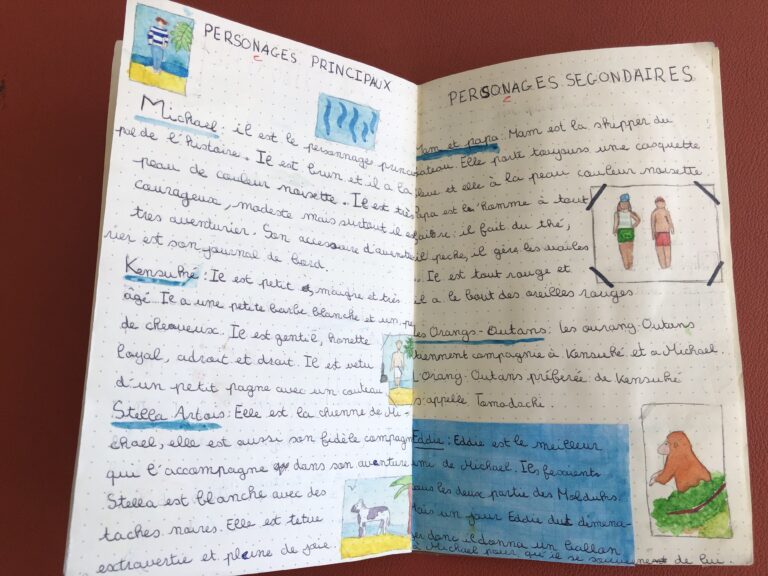 PERSONAGES PRINCIPAUX
Michael : il est le personnages princi
pal de l'histoire. Il est brun et il a la
peau de couleur noisette. Il est très
courageux, modeste mais surtout il es
très aventurier. Son accessoire d'aventu
rier est son journal de bord.
Kensuké : Il est petit maigre et très
âgé. Il a une petite barbe blanche et un pe
de cheveux. Il est gentil, honette
loyal, adroit et droit. Il est vetu
d'un petit pagne avec un couteau
Stella Artois : Elle est la chienne de Mi-
chael, elle est aussi son fidèle compagn
qui l'accompagne dans son aventure
Stella est blanche avec des
taches noires. Elle est tetue
extravertie et pleine de joie.
PERSONAGES SEGONDAIRES
Mam et papa : Mam est la skipper du
bateau. Elle porte toujours une casquette
bleue et elle à la peau couleur noisette
Papa est le l'homme à tout
faire : il fait du thé,
il peche, il gère les voiles
. Il est tout rouge et
il a le bout des oreilles rouges.
les Orangs-Outans : les ourang-Outans
tiennent compagnie à Kensuké et a Michael.
L'Orang-Outans préferée de Kensuké
s'appelle Tomodachi.
Eddie : Eddie est le meilleur
ami de Michael. Ils fesaient
tous les deux partie des Molduhs.
Mais un jour Eddie dut demena-
ger donc il donna un ballon
à Michael pour qu'il se souvienne de lui.